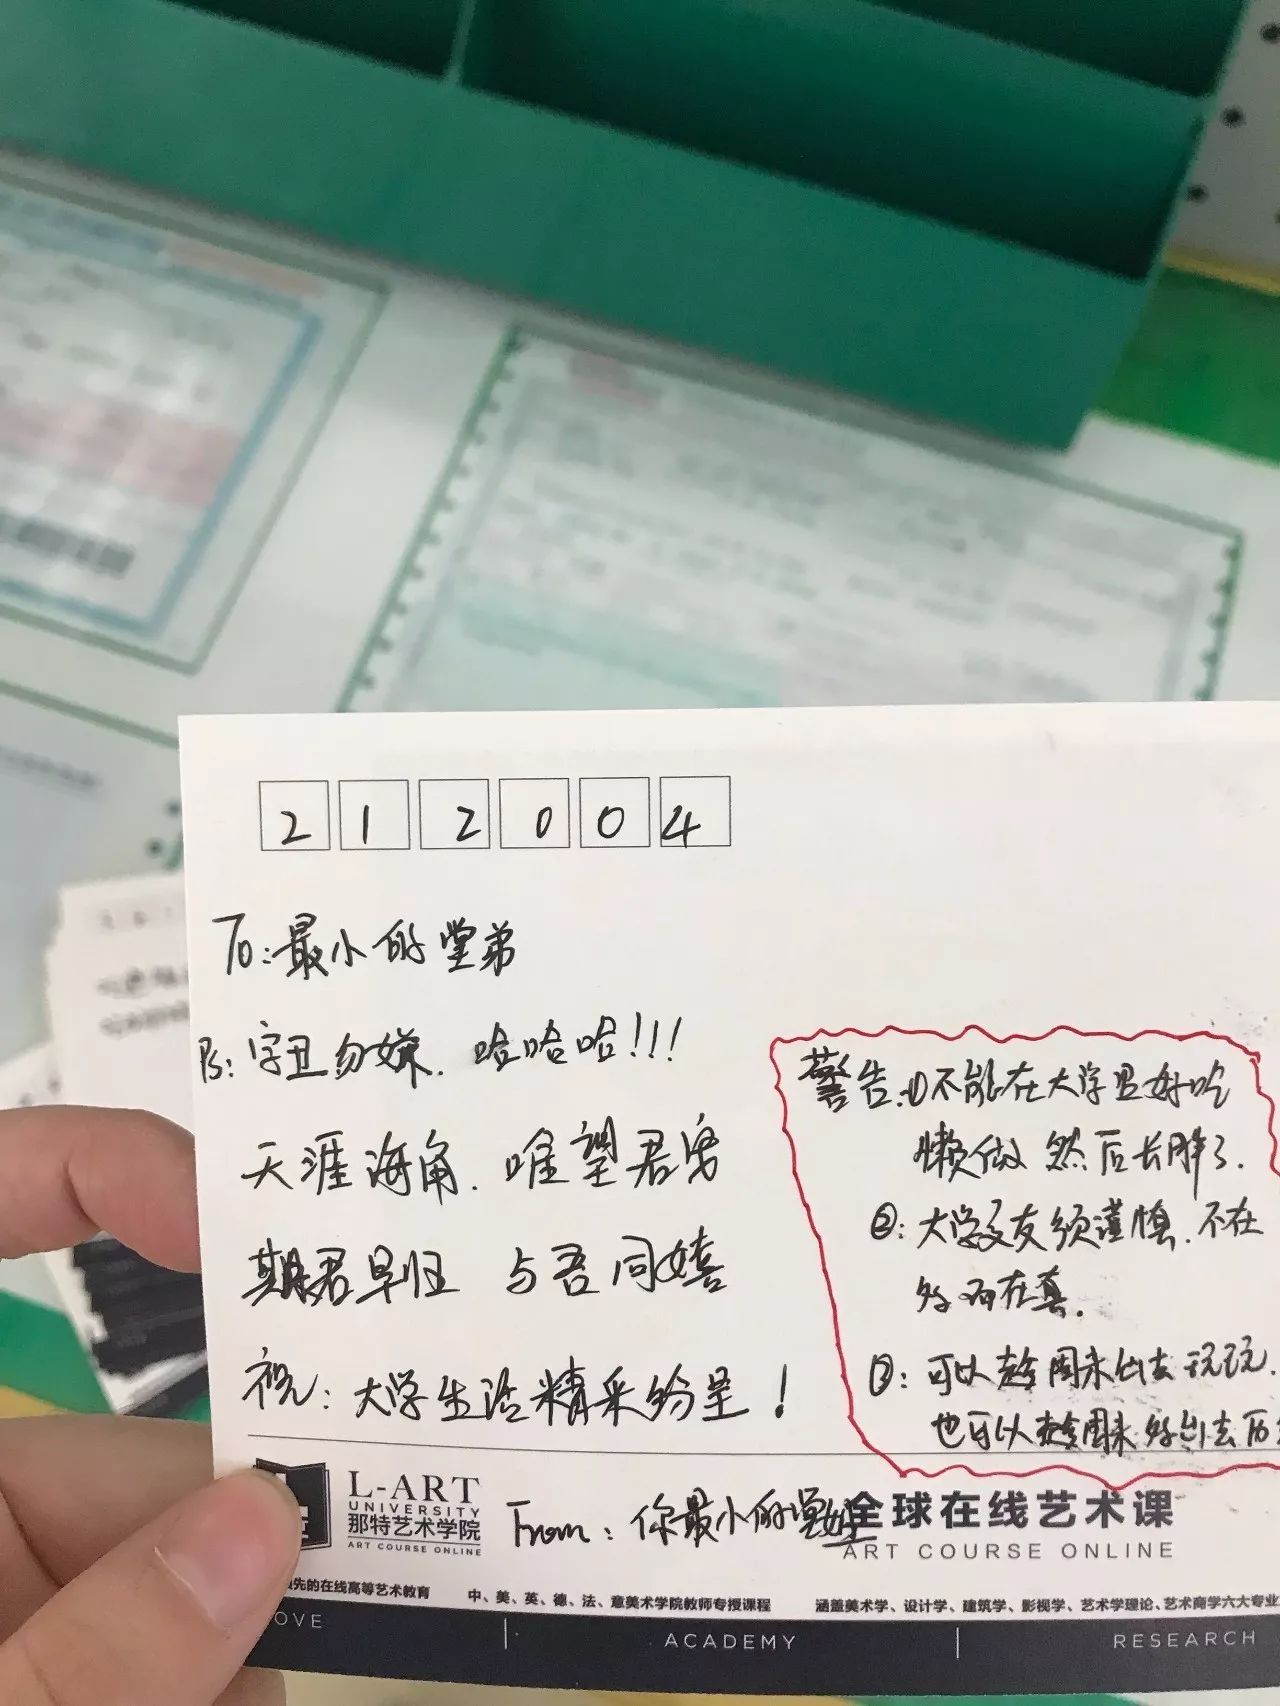 212004
To:最小的堂弟
Ps:字丑勿嫌.哈哈哈!!!
天涯海角.唯望君安
期君早归 与吾同嬉
祝:大学生活精采纷呈!
警告.①不能在大学里好吃
懒做 然后长胖了.
②:大学交友须谨慎.不在
多而在真.
③:可以趁周末出去玩玩.
也可以趁周末多出去历
L-ART
UNIVERSITY
那特艺术学院
ART COURSE ONLINE
From:你最小的堂姐
全球在线艺术课
ART COURSE ONLINE
先的在线高等艺术教育 中、美、英、德、法、意美术学院教师专授课程 涵盖美术学、设计学、建筑学、影视学、艺术学理论、艺术商学六大专业
OVE | ACADEMY | RESEARCH